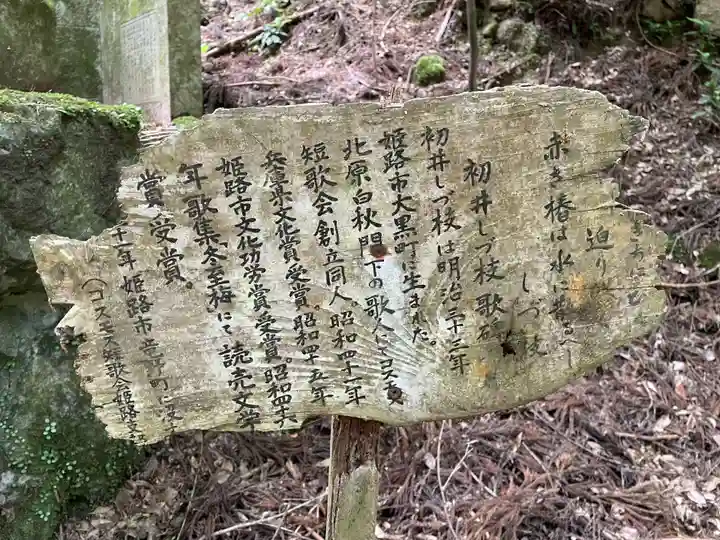 きうにむ
迫り
赤き椿は水に
しづ枝
初井しづ枝歌碑
初井しづ枝は明治三十三年
姫路市大黒町に生まれた。
北原白秋門下の歌人にてコスモス
短歌会創立同人。昭和四十一年
兵庫県文化賞受賞。昭和四十五年
姫路市文化功労賞受賞。昭和四十六
年歌集「冬至梅」にて読売文学
賞受賞。
十一年姫路市
（コスモス短歌会姫路支